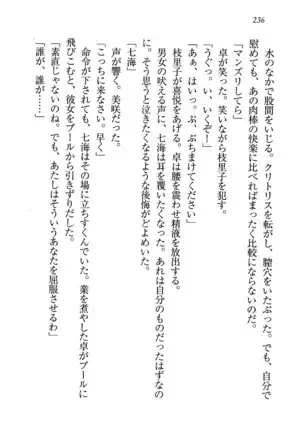 236
水のなかで股間をいじる。クリトリスを転がし、膣穴をいたぶった。でも、自分で
慰めても、あの肉棒の快楽に比べればまったく比較にならないのだ。
「マンズリしてら」
卓が笑った。笑いながら枝里子を犯す。
「うぐっ。い、いくぞ！」
「あぁ、はいっ。ぶ、ぶちまけてください」
枝里子が喜悦をあげる。卓は腰を震わせ精液を放出する。
男女の吠える声に、七海は耳を覆いたくなった。あれは自分のものだったはずなの
に。そう思うと泣きたくなるような後悔がどよめいた。
「七海」
声が響く。美咲だった。
「こっちに来なさい。早く」
命令が下されても、七海はその場に立ちすくんでいた。業を煮やした卓がプールに
飛びこむと、彼女をプールから引きずりだした。
「素直じゃないのね。でも、あたしはそういうあなたを屈服させるわ」
「誰が、誰が……」